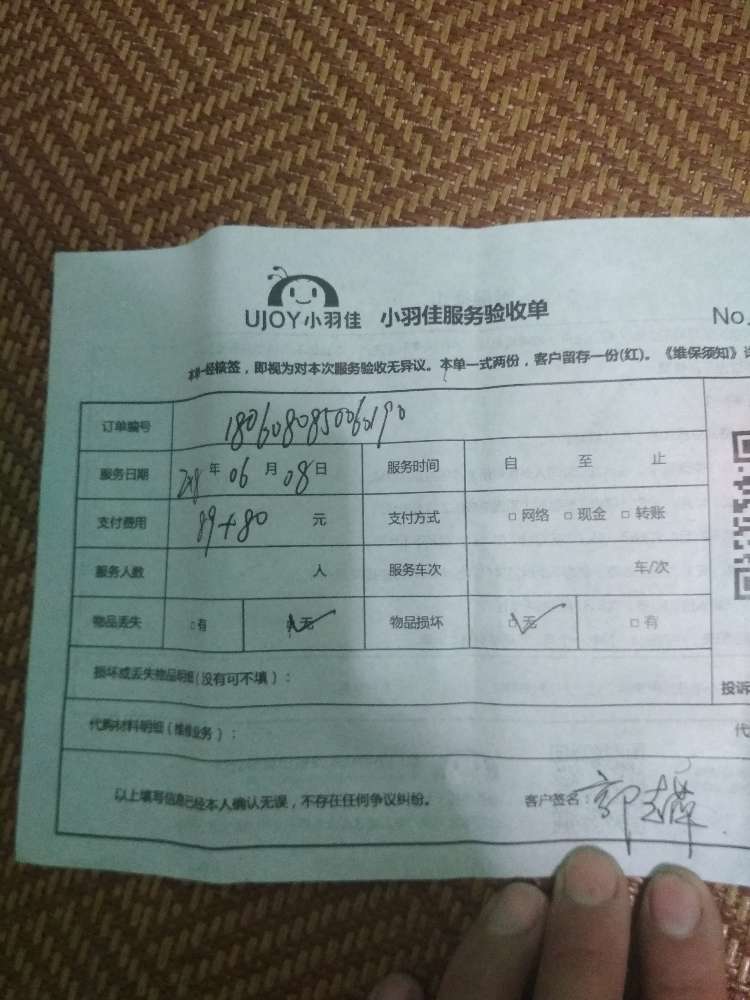 UJOY小羽佳 小羽佳服务验收单 No.
本单一经核签，即视为对本次服务验收无异议。本单一式两份，客户留存一份(红)。《维保须知》详
订单编号 1806080850060190
服务日期 2018 年 06 月 08 日 服务时间 自 至 止
支付费用 89+80 元 支付方式 □ 网络 □ 现金 □ 转账
服务人数 人 服务车次 车/次
物品丢失 □有 □无 物品损坏 □无 □有
损坏或丢失物品明细(没有可不填)： 投诉
代购材料明细(维修业务)： 代
以上填写信息已经本人确认无误，不存在任何争议纠纷。 客户签名：郭